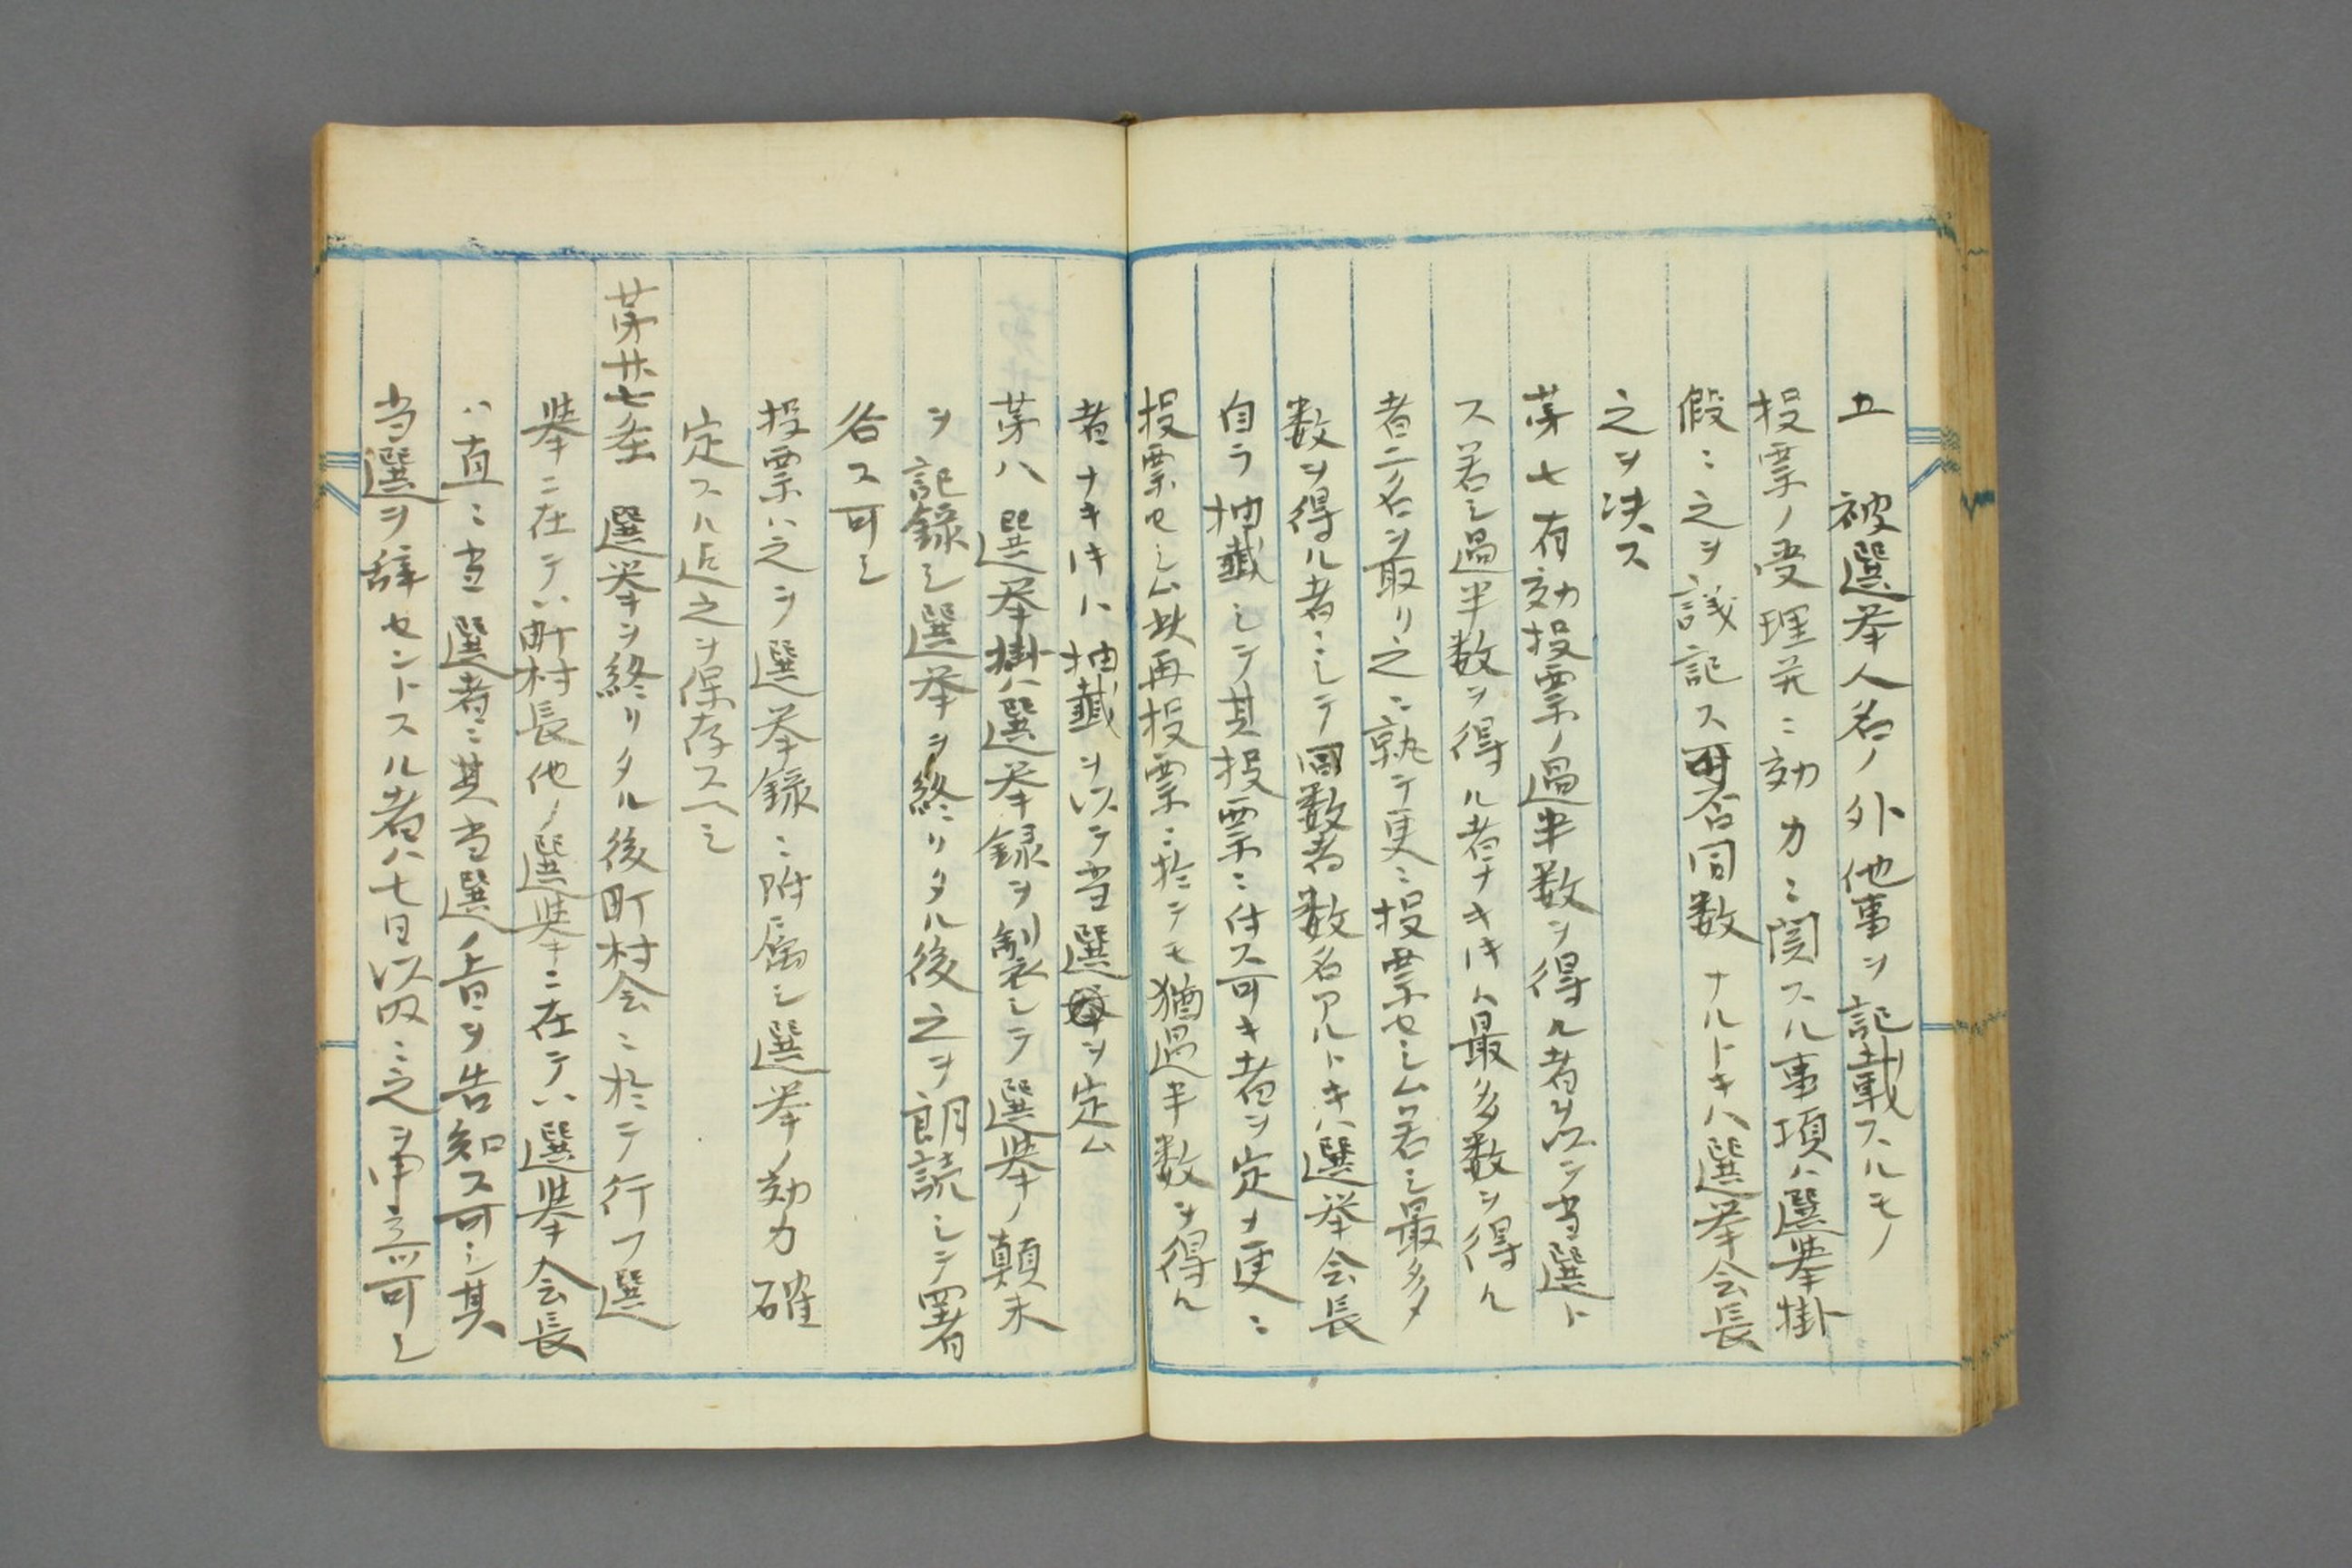 五　被選挙人名ノ外他事ヲ記載スルモノ
投票ノ受理并ニ効力ニ関スル事項ハ選挙掛
假ニ之ヲ議記ス可否同数ナルトキハ選挙会長
之ヲ决ス
第七有効投票ノ過半数ヲ得ル者ヲ以テ当選ト
ス若シ過半数ヲ得ル者ナキ𪜈ハ最多数ヲ得ル
者二名ヲ取リ之ニ就テ更ニ投票セシム若シ最多
数ヲ得ル者ニシテ同数者数名アルトキハ選挙会長
自ラ抽籤シテ其投票ニ付ス可キ者ヲ定メ更ニ
投票セシム此再投票ニ於テモ猶過半数ヲ得ル
者ナキ𪜈ハ抽籤ヲ以テ当選ヲ定ム
第八選挙掛ハ選挙録ヲ製シテ選挙ノ顛末
ヲ記録シ選挙ヲ終リタル後之ヲ朗読シテ署
名ス可シ
投票ハ之ヲ選挙録ニ附属シ選挙ノ効力確
定スル迄之ヲ保存スヘシ
第廿七条　選挙ヲ終リタル後町村会ニ於テ行フ選
挙ニ在テハ町村長他ノ選挙ニ在テハ選挙会長
ハ直ニ当選者ニ其当選ノ旨ヲ告知ス可シ其
当選ヲ辞セントスル者ハ七日以内ニ之ヲ申立ツ可シ